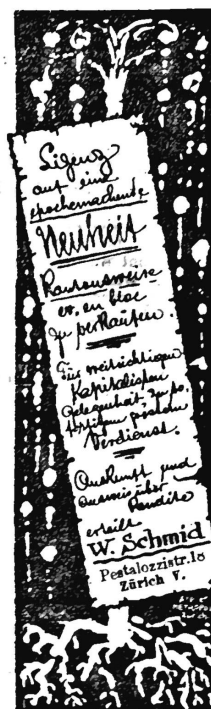 Lizenz
auf eine
epochemachende
Neuheit
Kantonsweise
ev. en bloc
zu verkaufen.
Für weitsichtigen
Kapitalisten
Gelegenheit, zu so-
fortigem
Verdienst.
Auskunft und
Ausweis über
Rendite
erteilt
W. Schmid
Pestalozzistr. 18
Zürich V.